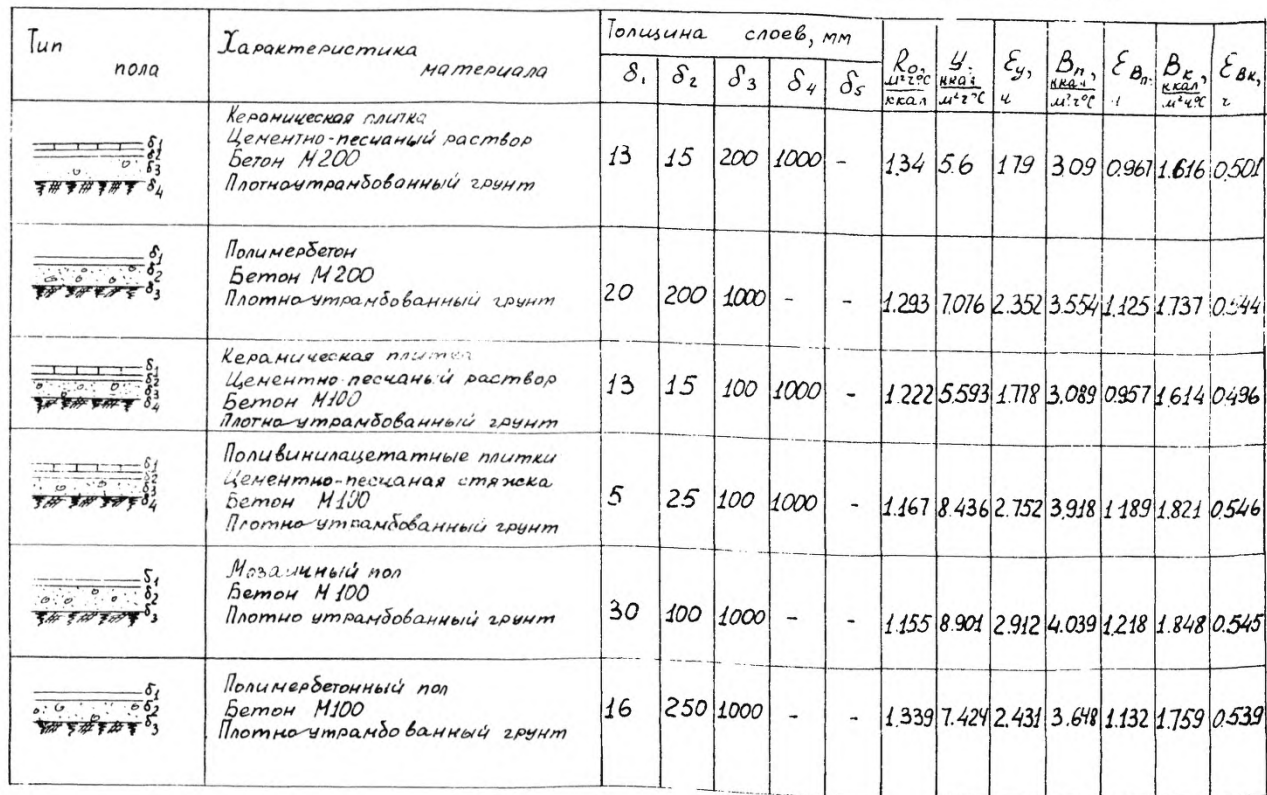 Тип пола
Характеристика материала
Толщина слоев, мм
δ₁ δ₂ δ₃ δ₄ δ₅
R₀, м²г°С/ккал
У, ккал/м²г°С
Ɛу, ч
Вп, ккал/м²г°С
ƐВп,
Вк, ккал/м²ч°С
ƐВк, г
δ1
δ2
δ3
δ4
Керамическая плитка
Цементно-песчаный раствор
Бетон М200
Плотноутрамбованный грунт
13 15 200 1000 - 1,34 5.6 1.79 3.09 0.967 1.616 0.501
δ1
δ2
δ3
Полимербетон
Бетон М200
Плотно утрамбованный грунт
20 200 1000 - - 1.293 7.076 2.352 3.554 1.125 1.737
δ1
δ2
δ3
δ4
Керамическая плитка
Цементно-песчаный раствор
Бетон М100
Плотно утрамбованный грунт
13 15 100 1000 - 1.222 5.593 1.778 3.089 0.957 1.614 0.496
δ1
δ2
δ3
δ4
Поливинилацетатные плитки
Цементно-песчаная стяжка
Бетон М100
Плотно утрамбованный грунт
5 25 100 1000 - 1.167 8.436 2.752 3.918 1.189 1.821 0.546
δ1
δ2
δ3
Мозаичный пол
Бетон М100
Плотно утрамбованный грунт
30 100 1000 - - 1.155 8.901 2.912 4.039 1.218 1.848 0.545
δ1
δ2
δ3
Полимербетонный пол
Бетон М100
Плотно утрамбованный грунт
16 250 1000 - - 1.339 7.424 2.431 3.648 1.132 1.759 0.539